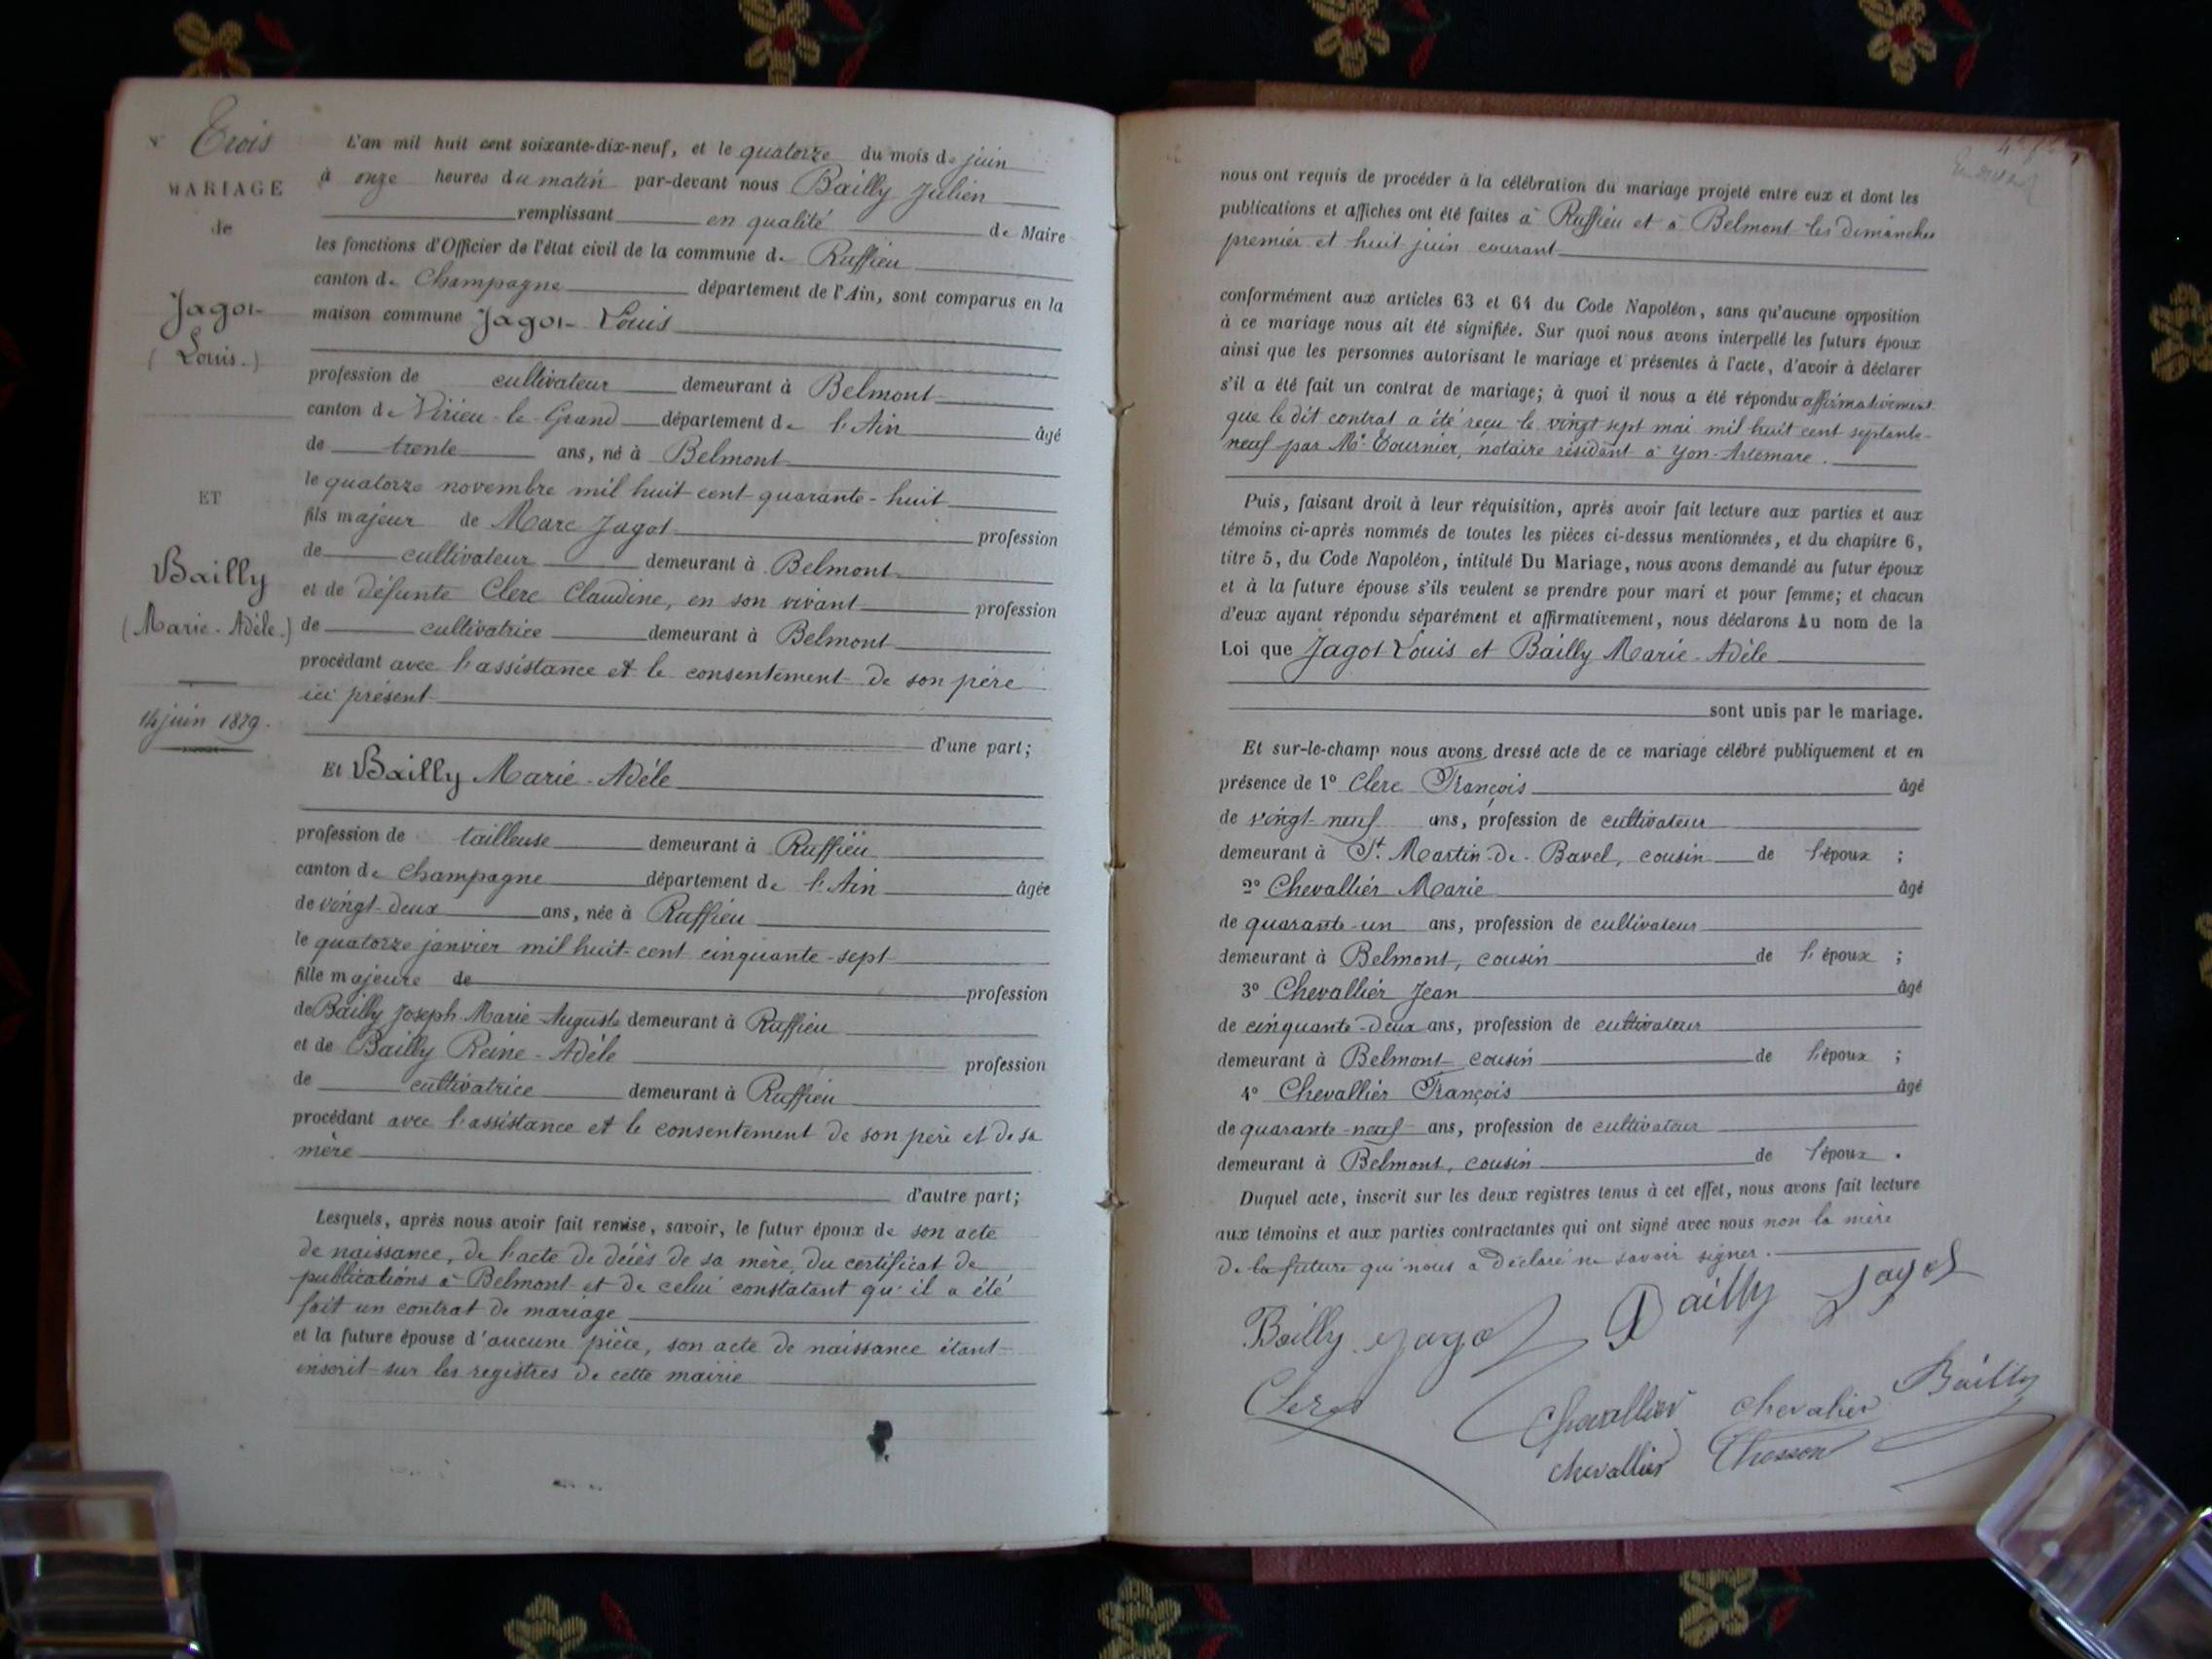 N° Trois
MARIAGE
de
Jagot
(Louis.)
ET
Bailly
(Marie-Adèle.)
14 juin 1879.
L'an mil huit cent soixante-dix-neuf, et le quatorze du mois de juin
à onze heures du matin par-devant nous Bailly Julien
remplissant en qualité de Maire
les fonctions d'Officier de l'état civil de la commune de Ruffieu
canton de Champagne département de l'Ain, sont comparus en la
maison commune Jagot Louis
profession de cultivateur demeurant à Belmont
canton de Virieu-le-Grand département de l'Ain âgé
de trente ans, né à Belmont
le quatorze novembre mil huit cent quarante-huit
fils majeur de Marc Jagot profession
de cultivateur demeurant à Belmont
et de défunte Clerc Claudine, en son vivant profession
de cultivatrice demeurant à Belmont
procédant avec l'assistance et le consentement de son père
ici présent
d'une part;
Et Bailly Marie-Adèle
profession de tailleuse demeurant à Ruffieu
canton de Champagne département de l'Ain âgée
de vingt-deux ans, née à Ruffieu
le quatorze janvier mil huit cent cinquante-sept
fille majeure de profession
de Bailly Joseph Marie Auguste demeurant à Ruffieu
et de Bailly Reine-Adèle profession
de cultivatrice demeurant à Ruffieu
procédant avec l'assistance et le consentement de son père et de sa
mère
d'autre part;
Lesquels, après nous avoir fait remise, savoir, le futur époux de son acte
de naissance, de l'acte de décès de sa mère, du certificat de
publications à Belmont et de celui constatant qu'il a été
fait un contrat de mariage
et la future épouse d'aucune pièce, son acte de naissance étant
inscrit sur les registres de cette mairie
nous ont requis de procéder à la célébration du mariage projeté entre eux et dont les
publications et affiches ont été faites à Ruffieu et à Belmont les dimanches
premier et huit juin courant
conformément aux articles 63 et 64 du Code Napoléon, sans qu'aucune opposition
à ce mariage nous ait été signifiée. Sur quoi nous avons interpellé les futurs époux
ainsi que les personnes autorisant le mariage et présentes à l'acte, d'avoir à déclarer
s'il a été fait un contrat de mariage; à quoi il nous a été répondu affirmativement
que le dit contrat a été reçu le vingt sept mai mil huit cent septante-
neuf par Me Tournier, notaire résidant à Yon-Artemare.
Puis, faisant droit à leur réquisition, après avoir fait lecture aux parties et aux
témoins ci-après nommés de toutes les pièces ci-dessus mentionnées, et du chapitre 6,
titre 5, du Code Napoléon, intitulé Du Mariage, nous avons demandé au futur époux
et à la future épouse s'ils veulent se prendre pour mari et pour femme; et chacun
d'eux ayant répondu séparément et affirmativement, nous déclarons Au nom de la
Loi que Jagot Louis et Bailly Marie-Adèle
sont unis par le mariage.
Et sur-le-champ nous avons dressé acte de ce mariage célébré publiquement et en
présence de 1° Clerc François âgé
de vingt-neuf ans, profession de cultivateur
demeurant à St. Martin-de-Bavel, cousin de l'époux ;
2° Chevallier Marie âgé
de quarante-un ans, profession de cultivateur
demeurant à Belmont, cousin de l'époux ;
3° Chevallier Jean âgé
de cinquante-deux ans, profession de cultivateur
demeurant à Belmont cousin de l'époux ;
4° Chevallier François âgé
de quarante-neuf ans, profession de cultivateur
demeurant à Belmont, cousin de l'époux.
Duquel acte, inscrit sur les deux registres tenus à cet effet, nous avons fait lecture
aux témoins et aux parties contractantes qui ont signé avec nous non la mère
de la future qui nous a déclaré ne savoir signer.
Bailly Jagot Bailly Jagot
Clerc Chevallier chevalier Bailly
chevallier